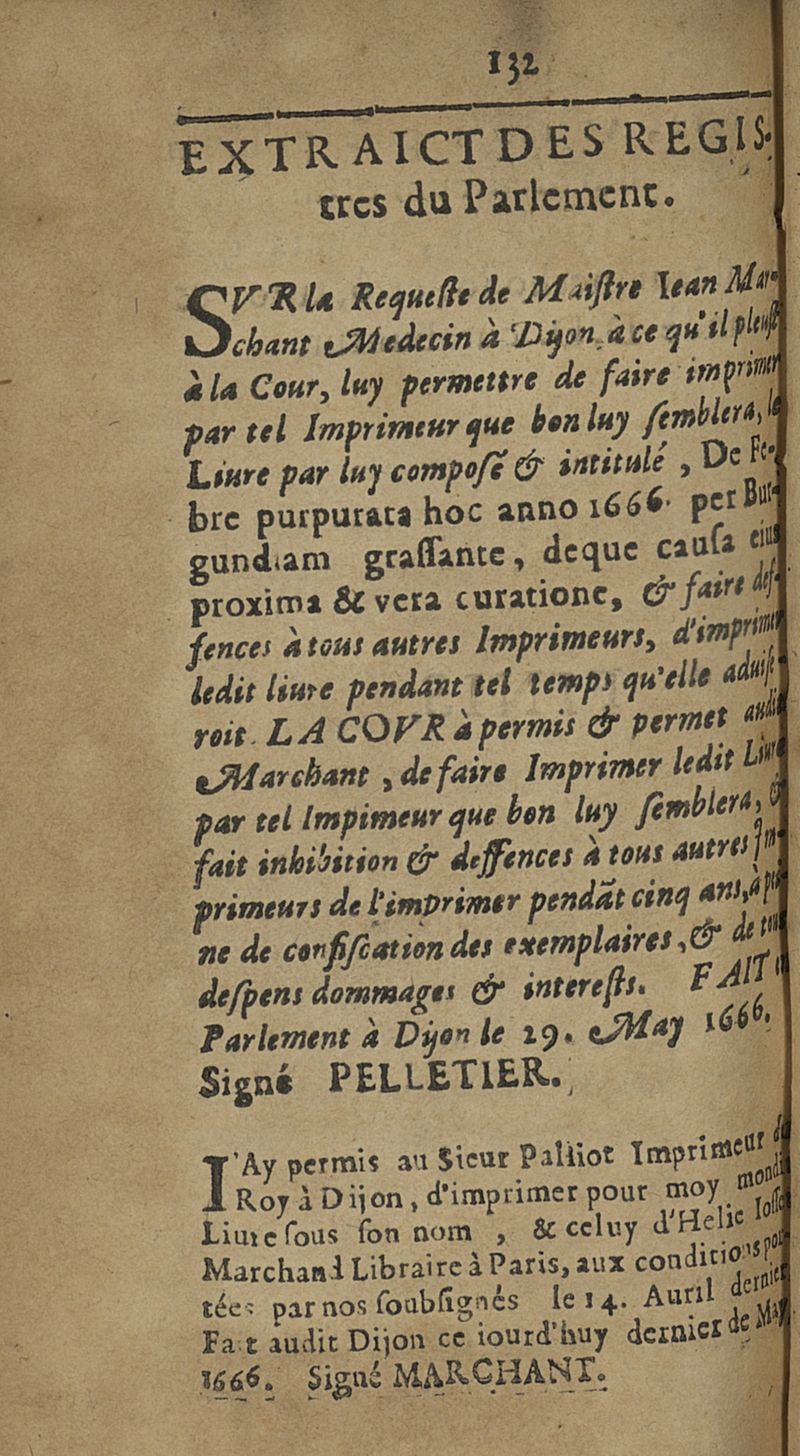 132
EXTRAICT DES REGIS-
tres du Parlement.
SVR la Requeſte de Maiſtre Iean Mar-
chant Medecin à Dijon, à ce qu'il pleuſt
à la Cour, luy permettre de faire imprimer
par tel Imprimeur que bon luy ſemblera, le
Liure par luy compoſé & intitulé, De Fe-
bre purpurata hoc anno 1666. per Bur-
gundiam graſſante, deque cauſa eius
proxima & vera curatione, & faire deſ-
fences à tous autres Imprimeurs, d'imprimer
ledit liure pendant tel temps qu'elle aduiſe-
roit. LA COVR à permis & permet audit
Marchant, de faire Imprimer ledit Liure
par tel Impimeur que bon luy ſemblera, &
fait inhibition & deffences à tous autres Im-
primeurs de l'imprimer pendãt cinq ans, à pei-
ne de confiſcation des exemplaires, & de tous
deſpens dommages & intereſts. FAIT
Parlement à Dijon le 29. May 1666.
Signé PELLETIER.
I'Ay permis au Sieur Palliot Imprimeur du
Roy à Dijon, d'imprimer pour moy mondit
Liure ſous ſon nom, & celuy d'Helie Ioſſet
Marchand Libraire à Paris, aux conditions por-
tées par nos ſoubſignés le 14. Auril dernier
Fait audit Dijon ce iourd'huy dernier de May
1666. Signé MARCHANT.